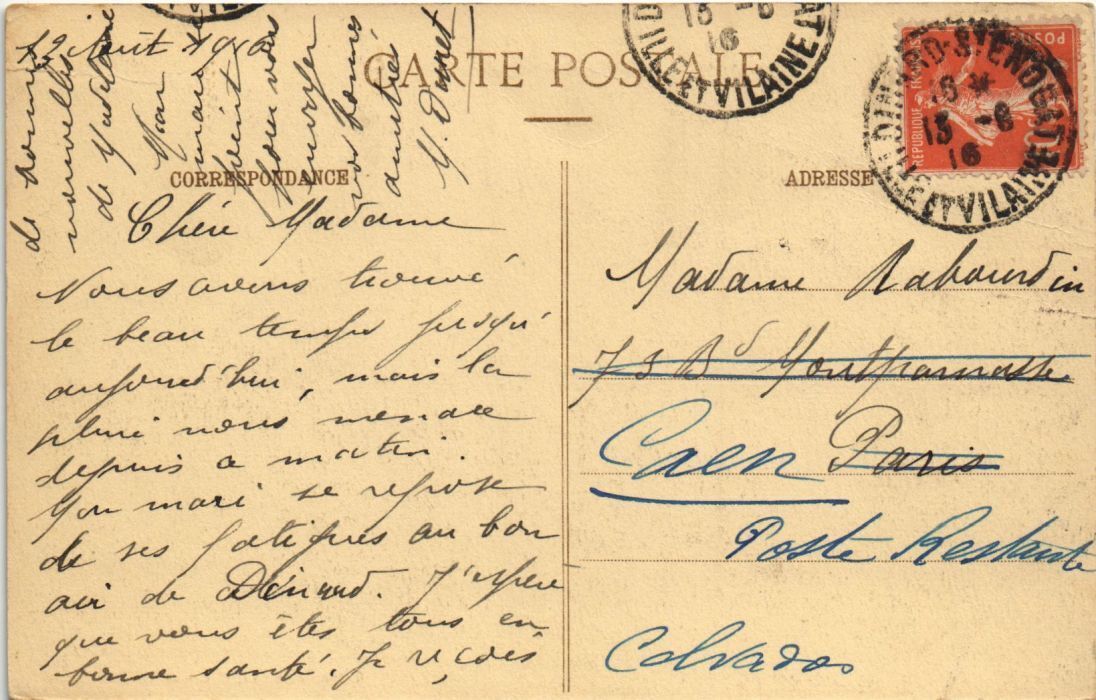 12 Août 1916
CARTE POSTALE
CORRESPONDANCE
Chère Madame
Nous avons trouvé
le beau temps jusqu'
aujourd'hui, mais la
pluie nous menace
depuis ce matin.
Mon mari se repose
de ses fatigues au bon
air de Dinard. J'espère
que vous êtes tous en
bonne santé. Je reçois
de bonnes
nouvelles
de Madeleine
Mon
mari se
joint
pour vous
envoyer
nos bonnes
amitiés
ADRESSE
Madame Rabourdin
73 Bd Montparnasse
Caen Paris
Poste Restante
Calvados
DINARD-ST ENOGAT
18 *
13 -8
16
ILLE ET VILAINE
13 -8
16
ILLE ET VILAINE
REPUBLIQUE FRANÇAISE
POSTES